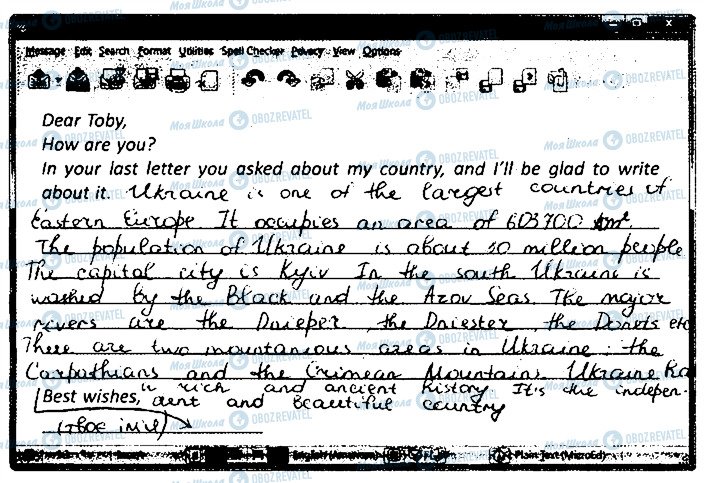 Message Edit Search Format Utilities Spell Checker Privacy View Options
Dear Toby,
How are you?
In your last letter you asked about my country, and I'll be glad to write
about it. Ukraine is one of the largest countries of
Eastern Europe It occupies an area of 603700 km²
The population of Ukraine is about 50 million people
The capital city is Kyiv In the south Ukraine is
washed by the Black and the Azov Seas. The major
rivers are the Dnieper, the Dniester, the Donets etc
There are two mountainous areas in Ukraine: the
Carpathians and the Crimean Mountains. Ukraine has
rich and ancient history. It's the indepen-
Best wishes, dent and beautiful country
(твоє ім'я)
English (American)
Plain Text (MicroEd)
Моя Школа OBOZREVATEL